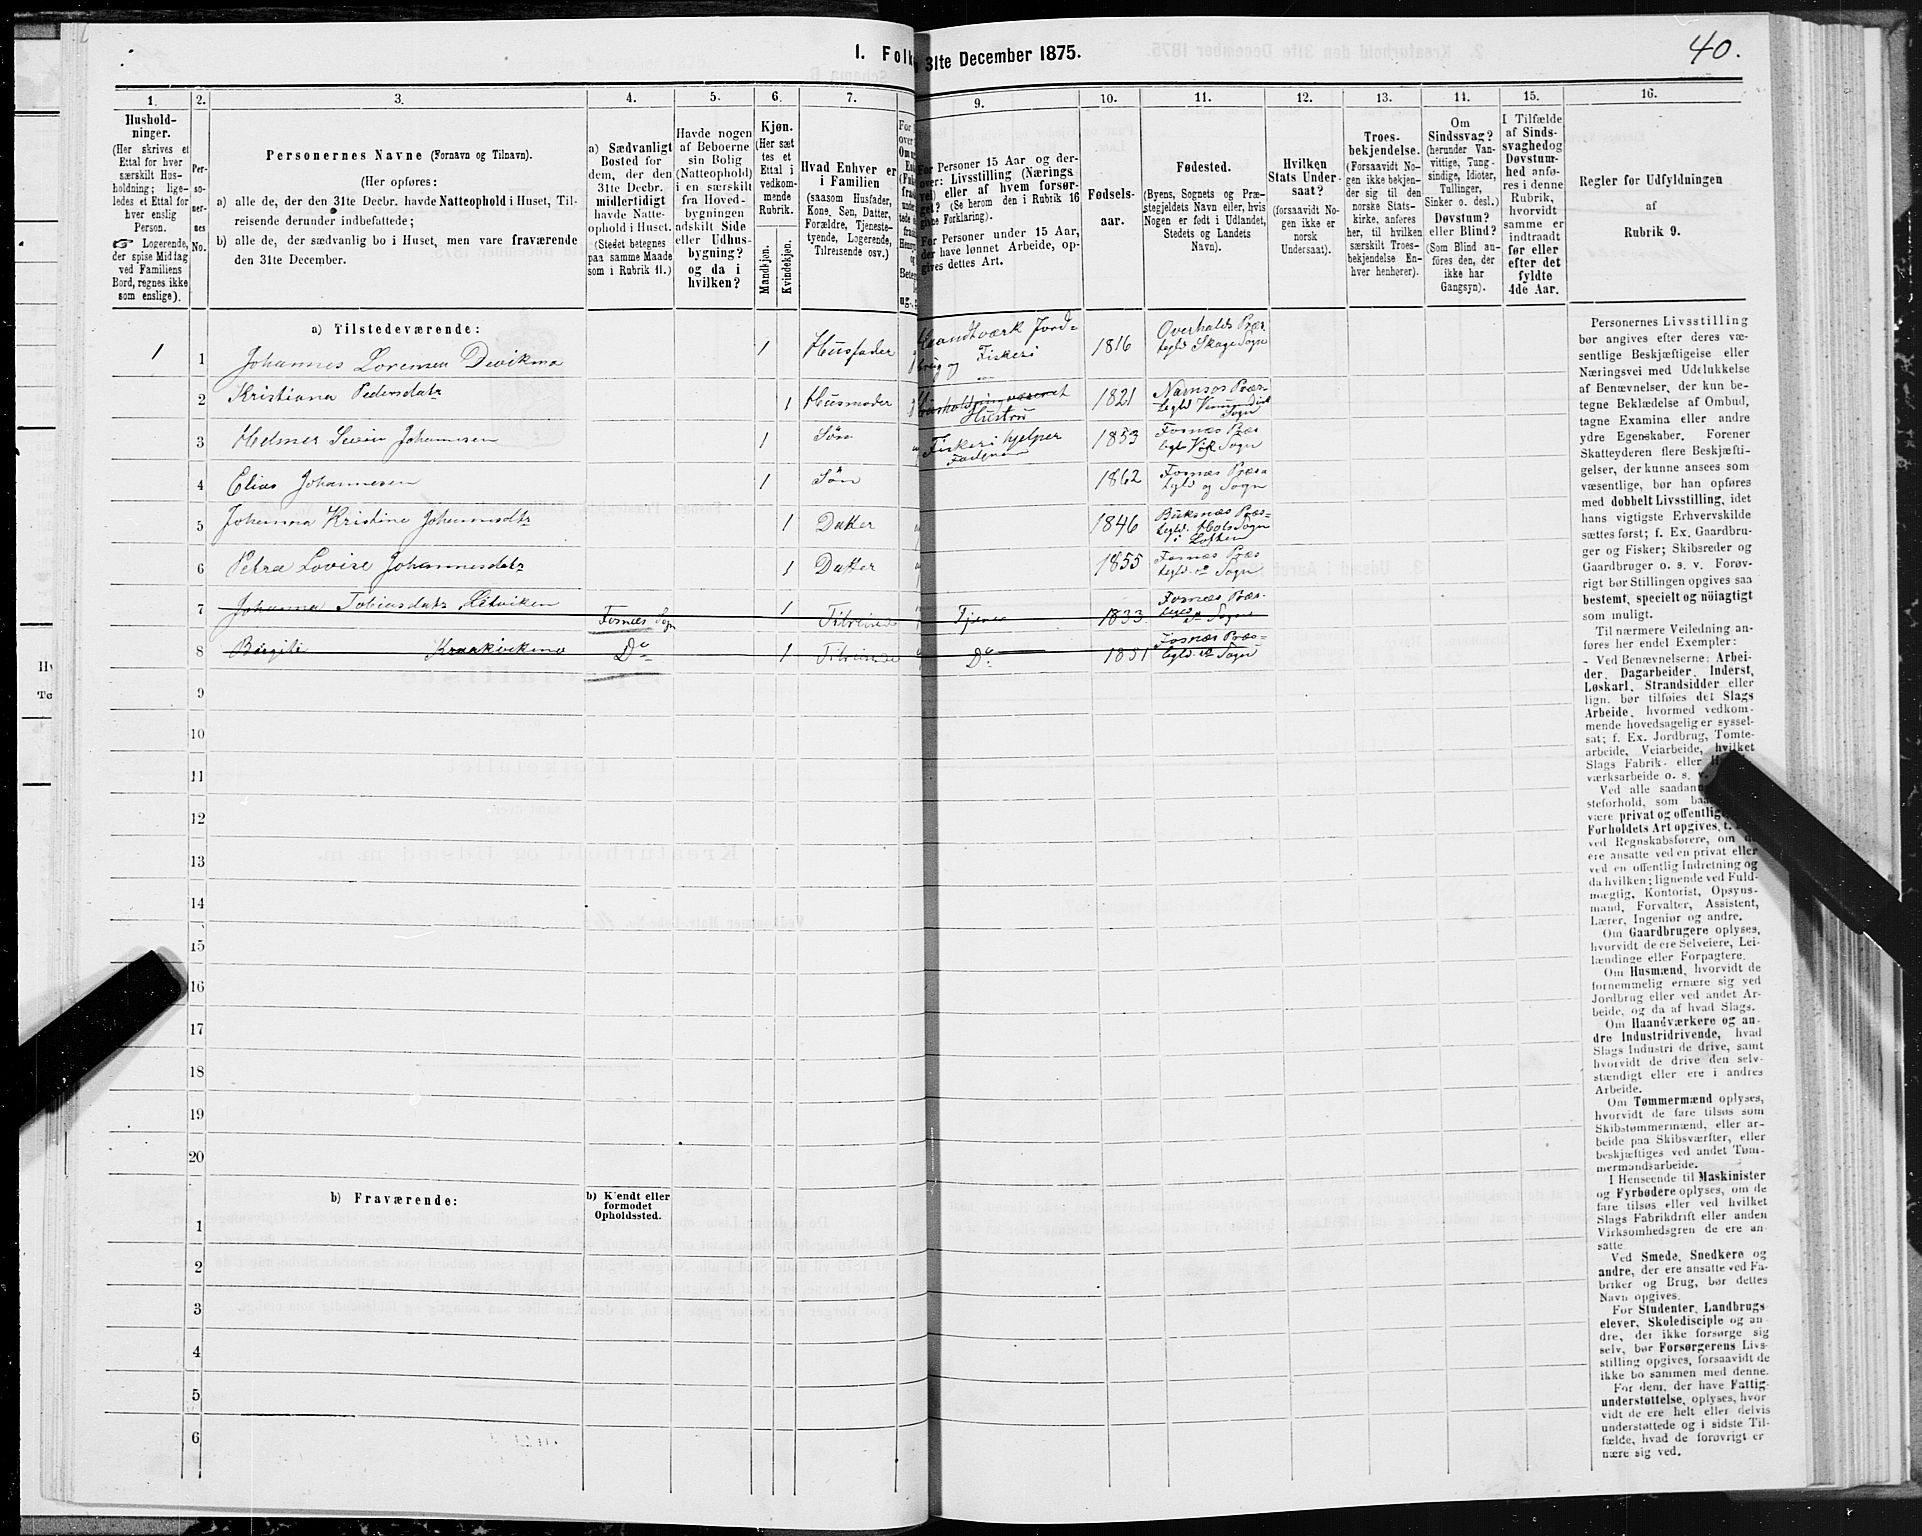 40.
I. Folk
31te December 1875.
1. 2. 3. 4. 5. 6. 7. 9. 10. 11. 12. 13. 14. 15. 16.
Hushold-
ninger.
(Her skrives et
Ettal for hver
særskilt Hus-
holdning; lige-
ledes et Ettal for
hver enslig
Person.
☞ Logerende,
der spise Middag
ved Familiens
Bord, regnes ikke
som enslige).
Per-
so-
ner-
nes
No.
Personernes Navne (Fornavn og Tilnavn).
(Her opføres:
a) alle de, der den 31te Decbr. havde Natteophold i Huset, Til-
reisende derunder indbefattede;
b) alle de, der sædvanlig bo i Huset, men vare fraværende
den 31te December.
a) Sædvanligt
Bosted for
dem, der den
31te Decbr.
midlertidigt
havde Natte-
ophold i Huset.
(Stedet betegnes
paa samme Maade
som i Rubrik 11.)
Havde nogen
af Beboerne
sin Bolig
(Natteophold)
i en særskilt
fra Hoved-
bygningen
adskilt Side
eller Udhus-
bygning?
og da i
hvilken?
Kjøn.
(Her sæt
tes et
Ettal i
vedkom-
mende
Rubrik.
Mandkjøn.
Kvindekjøn.
Hvad Enhver er
i Familien
(saasom Husfader,
Kone, Søn, Datter,
Forældre, Tjeneste-
tyende, Logerende,
Tilreisende osv.)
For Personer 15 Aar og der-
over: Livsstilling (Nærings
vei) eller af hvem forsør-
get? (Se herom den i Rubrik 16
givne Forklaring).
For Personer under 15 Aar,
der have lønnet Arbeide, op-
gives dettes Art.
Fødsels-
aar.
Fødested.
(Byens, Sognets og Præ-
stegjeldets Navn eller, hvis
Nogen er født i Udlandet,
Stedets og Landets
Navn).
Hvilken
Stats Under-
saat?
(forsaavidt No-
gen ikke er
norsk
Undersaat).
Troes-
bekjendelse.
(Forsaavidt No-
gen ikke bekjen-
der sig til den
norske Stats-
kirke, anføres
her, til hvilken
særskilt Troes-
bekjendelse En-
hver henhører).
Om
Sindssvag?
(herunder Van-
vittige, Tung-
sindige, Idioter,
Tullinger,
Sinker o. desl.)
Døvstum?
eller Blind?
(Som Blind an-
føres den, der
ikke har
Gangsyn).
I Tilfælde
af Sinds-
svaghed og
Døvstum-
hed anfø-
res i denne
Rubrik,
hvorvidt
samme er
indtraadt
før eller
efter det
fyldte
4de Aar.
Regler for Udfyldningen
af
Rubrik 9.
a) Tilstedeværende:
1 1 Johannes Lorensen Devikmo 1 Husfader Haandtværk Jord- 1816 Overhalds Præs
brug og Fiskeri tegld Skage Sogn
2 Kristiana Pedersdatr 1 Husmoder Husholdningvæsenet 1821 Namsos Præs-
Hustru tegld Sogn
3 Helmer Johannesen 1 Søn Fiskeri hjelper 1853 Fosnæs Præs
Faderen tegld Vik Sogn
4 Elias Johannesen 1 Søn 1862 Fosnæs Præs
tegld og Sogn
5 Johanna Kristine Johannesdtr 1 Datter 1846 Buksnæs Præs-
tegld. Hols Sogn
i Lofoten
6 Petra Lovise Johannesdatr 1 Datter 1855 Fosnæs Præs
tegld. Sogn
7 Johanna Tobiasdatr Fosnæs Sogn 1 Tilreisende Tjener 1833 Fosnæs Præs-
tegld Sogn
8 Bergite 1 Tilreisende Do 1851 Fosnæs Præs-
Do tegld Sogn
9
10
11
12
13
14
15
16
17
18
19
20
b) Fraværende:
b) Kjendt eller
formodet
Opholdssted.
1
2
3
4
5
6
Personernes Livsstilling
bør angives efter deres væ-
sentlige Beskjæftigelse eller
Næringsvei med Udelukkelse
af Benævnelser, der kun be-
tegne Beklædelse af Ombud,
tagne Examina eller andre
ydre Egenskaber. Forener
Skatteyderen flere Beskjæfti-
gelser, der kunne ansees som
væsentlige, bør han opføres
med dobbelt Livsstilling, idet
hans vigtigste Erhvervskilde
sættes først; f. Ex. Gaardbru-
ger og Fisker; Skibsreder og
Gaardbruger o. s. v. Forøv-
rigt bør Stillingen opgives saa
bestemt, specielt og nöiagtigt
som muligt.
Til nærmere Veiledning an-
føres her endel Exempler:
Ved Benævnelserne: Arbei-
der, Dagarbeider, Inderst,
Løskarl, Strandsidder eller
lign. bør tilføies det Slags
Arbeide, hvormed vedkom-
mende hovedsagelig er syssel-
sat; f. Ex. Jordbrug, Tomte-
arbeide, Veiarbeide, hvilket
Slags Fabrik- eller
værksarbeide o. s. v.
Ved alle saadan
steforhold, som
være privat og offentlig,
Forholdets Art opgives, t.
ved Regnskabsførere, om
ere ansatte ved en privat eller
ved en offentlig Indretning og
da hvilken; lignende ved Fuld-
mægtig, Kontorist, Opsyns-
mand, Forvalter, Assistent,
Lærer, Ingeniør og andre.
Om Gaardbrugere oplyses,
hvorvidt de ere Selveiere, Lei-
lændinge eller Forpagtere.
Om Husmænd, hvorvidt de
fornemmelig ernære sig ved
Jordbrug eller ved andet Ar-
beide, og da af hvad Slags.
Om Haandværkere og an-
dre Industridrivende, hvad
Slags Industri de drive, samt
hvorvidt de drive den selv-
stændigt eller ere i andres
Arbeide.
Om Tømmermænd oplyses,
hvorvidt de fare tilsøs som
Skibstømmermænd, eller ar-
beide paa Skibsværfter, eller
beskjæftiges ved andet Tøm-
mermandsarbeide.
I Henseende til Maskinister
og Fyrbødere oplyses, om de
fare tilsøs eller ved hvilket
Slags Fabrikdrift eller anden
Virksomhedsgren de ere an-
satte.
Ved Smede, Snedkere og
andre, der ere ansatte ved Fa-
briker og Brug, bør dettes
Navn opgives.
For Studenter, Landbrugs
elever, Skoledisciple og an-
dre, der ikke forsørge sig
selv, bør Forsørgerens Livs-
stilling opgives, forsaavidt de
ikke bo sammen med denne.
For dem, der have Fattig-
understøttelse, oplyses, hvor
vidt de ere helt eller delvis
understøttede og i sidste Til-
fælde, hvad de forøvrigt er
nære sig ved.